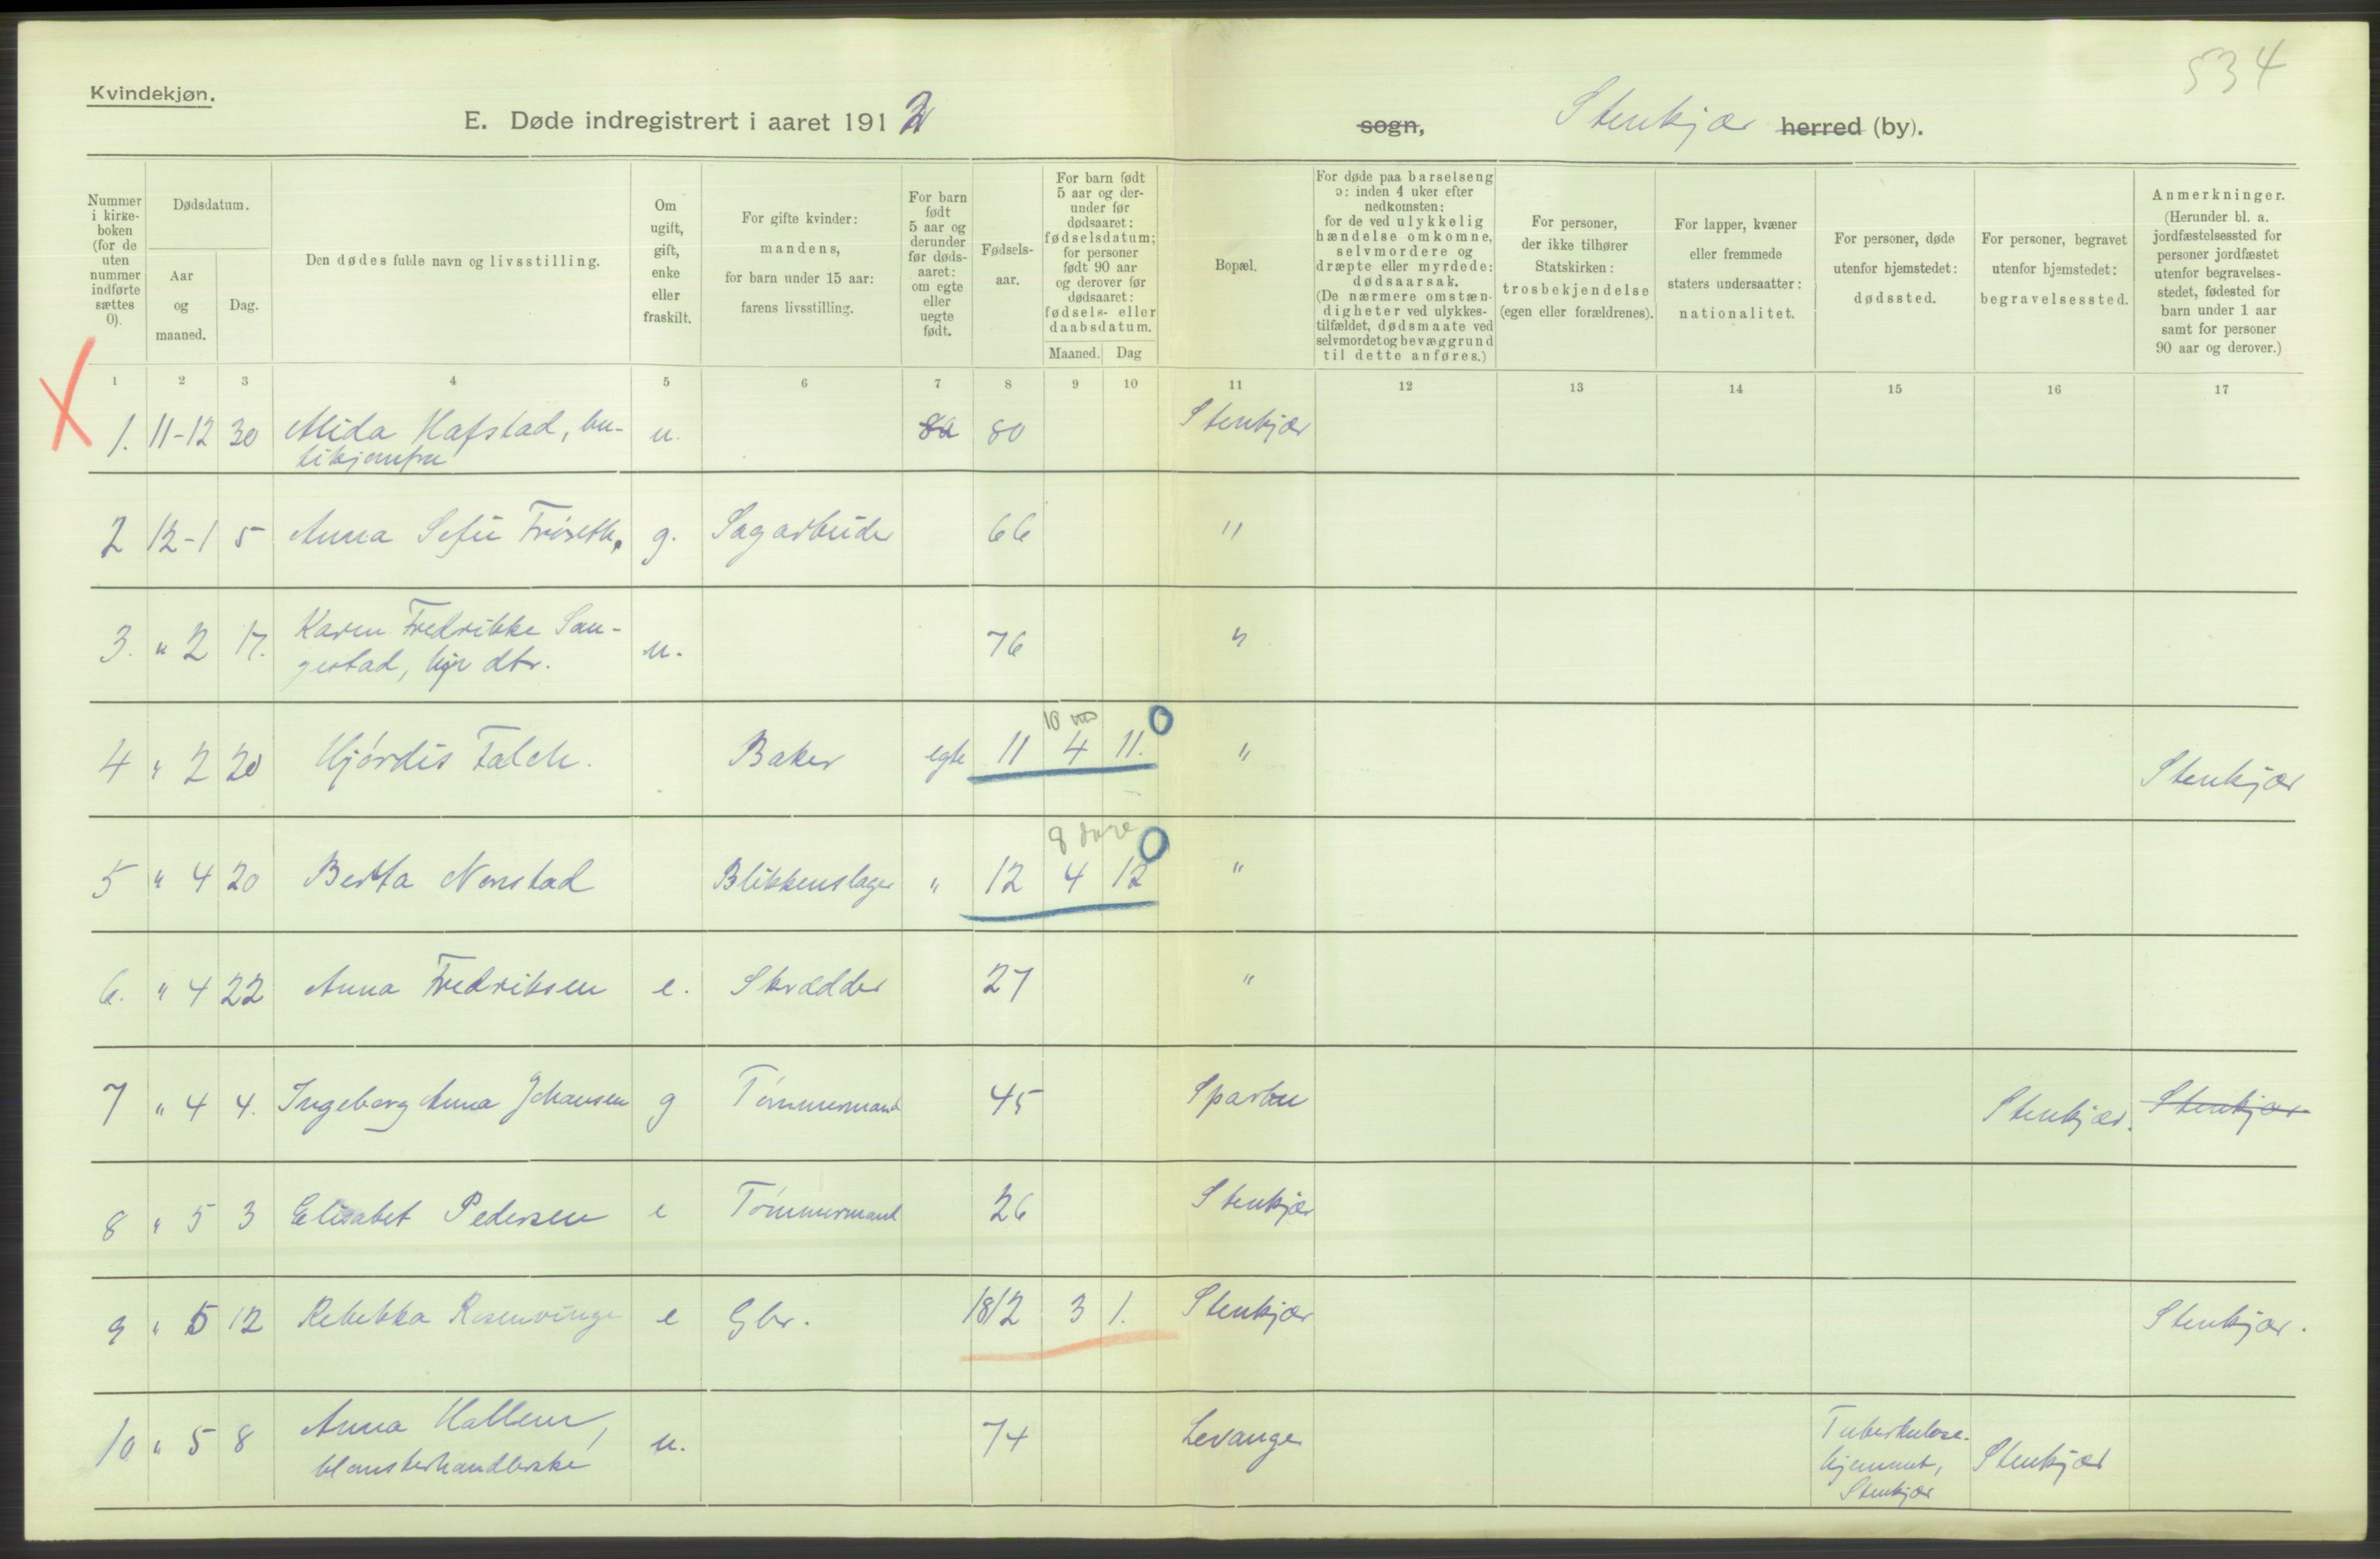 534
Kvindekjøn.
E. Døde indregistrert i aaret 1912
sogn, Stenkjær herred (by).
Nummer i kirke-boken (for de uten nummer indførte sættes 0).
Dødsdatum.
Aar og maaned.
Dag.
Den dødes fulde navn og livsstilling.
Om ugift, gift, enke eller fraskilt.
For gifte kvinder: mandens, for barn under 15 aar: farens livsstilling.
For barn født 5 aar og derunder før døds-aaret: om egte eller uegte født.
Fødsels-aar.
For barn født 5 aar og der-under før dødsaaret: fødselsdatum; for personer født 90 aar og derover før dødsaaret: fødsels- eller daabsdatum.
Maaned. Dag
Bopæl.
For døde paa barselseng ɔ: inden 4 uker efter nedkomsten: for de ved ulykkelig hændelse omkomne, selvmordere og dræpte eller myrdede: dødsaarsak. (De nærmere omstæn-digheter ved ulykkes-tilfældet, dødsmaate ved selvmordet og bevæggrund til dette anføres.)
For personer, der ikke tilhører Statskirken: trosbekjendelse (egen eller forældrenes).
For lapper, kvæner eller fremmede staters undersaatter: nationalitet.
For personer, døde utenfor hjemstedet: dødssted.
For personer, begravet utenfor hjemstedet: begravelsessted.
Anmerkninger. (Herunder bl. a. jordfæstelsessted for personer jordfæstet utenfor begravelses-stedet, fødested for barn under 1 aar samt for personer 90 aar og derover.)
1 2 3 4 5 6 7 8 9 10 11 12 13 14 15 16 17
1. 11-12 30 Alida Hafstad, bu- u. 80 80 Stenkjær
tikjomfru
2 12-1 5 Anna Sefie Frøseth, g. Sagarbeider 66 "
3. " 2 17. Karen Fredrikke San- u. 76 "
gestad, dtr.
10 
4 " 2 20 Hjørdis Falch. Baker egte 11 4 11. 0 " Stenkjær
8 
5 " 4 20 Berta Nonstad Blikkenslager " 12 4 12 0 "
6. " 4 22 Anna Fredriksen e. Skrædder 27 "
7 " 4 4. Ingeborg Anna Johansen g Tømmermand 45 Sparbu Stenkjær. Stenkjær
8 " 5 3 Elisabet Pedersen e Tømmermand 26 Stenkjær
9 " 5 12 Rebekka Rosenvinge e Gbr. 1812 3 1. Stenkjær Stenkjær.
10 " 5 8 Anna Hallem, u. 74 Levanger Tuberkulose- Stenkjær
blomsterhandlerske hjemmet,
Stenkjær